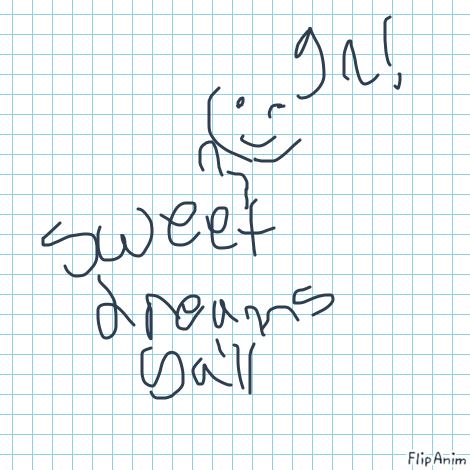 gn!
sweet
dreams
ya'll
FlipAnim